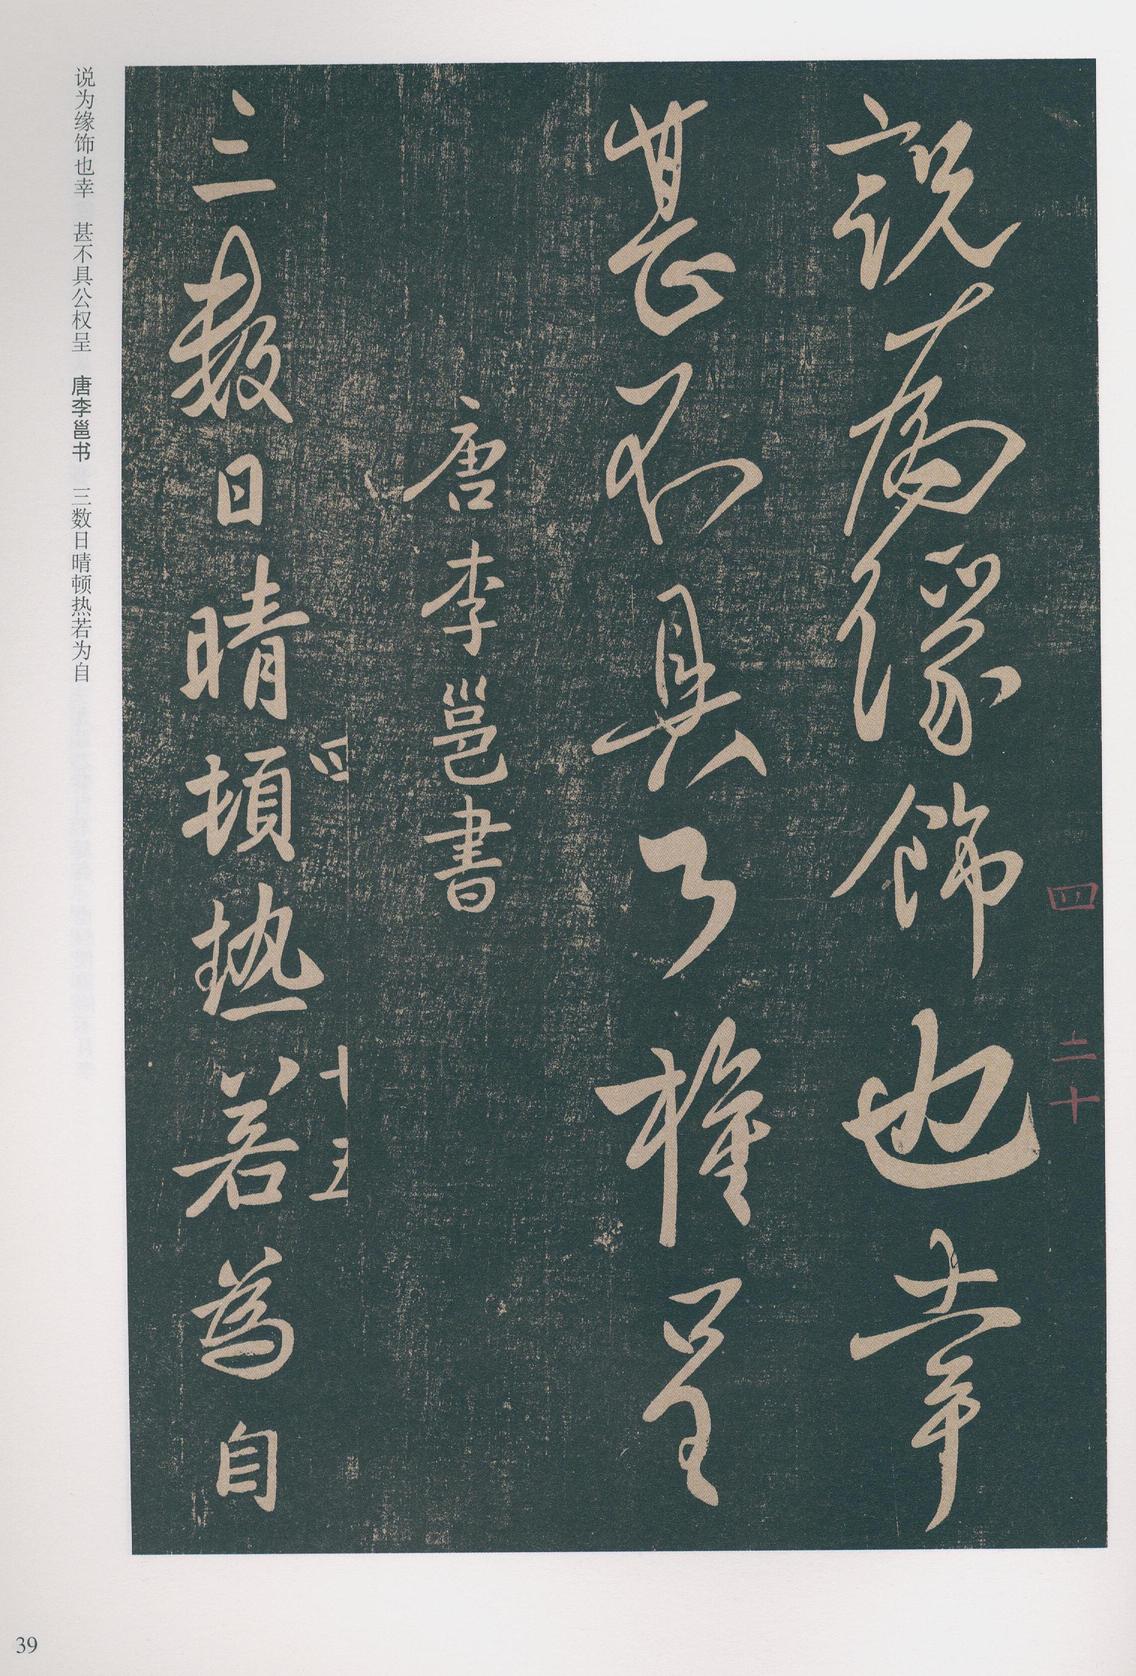 四 二十
說為緣飾也幸
甚不具公權呈
唐李邕書
四 十五
三數日晴頓热若為自
说为缘饰也幸 甚不具公权呈 唐李邕书 三数日晴顿热若为自
39